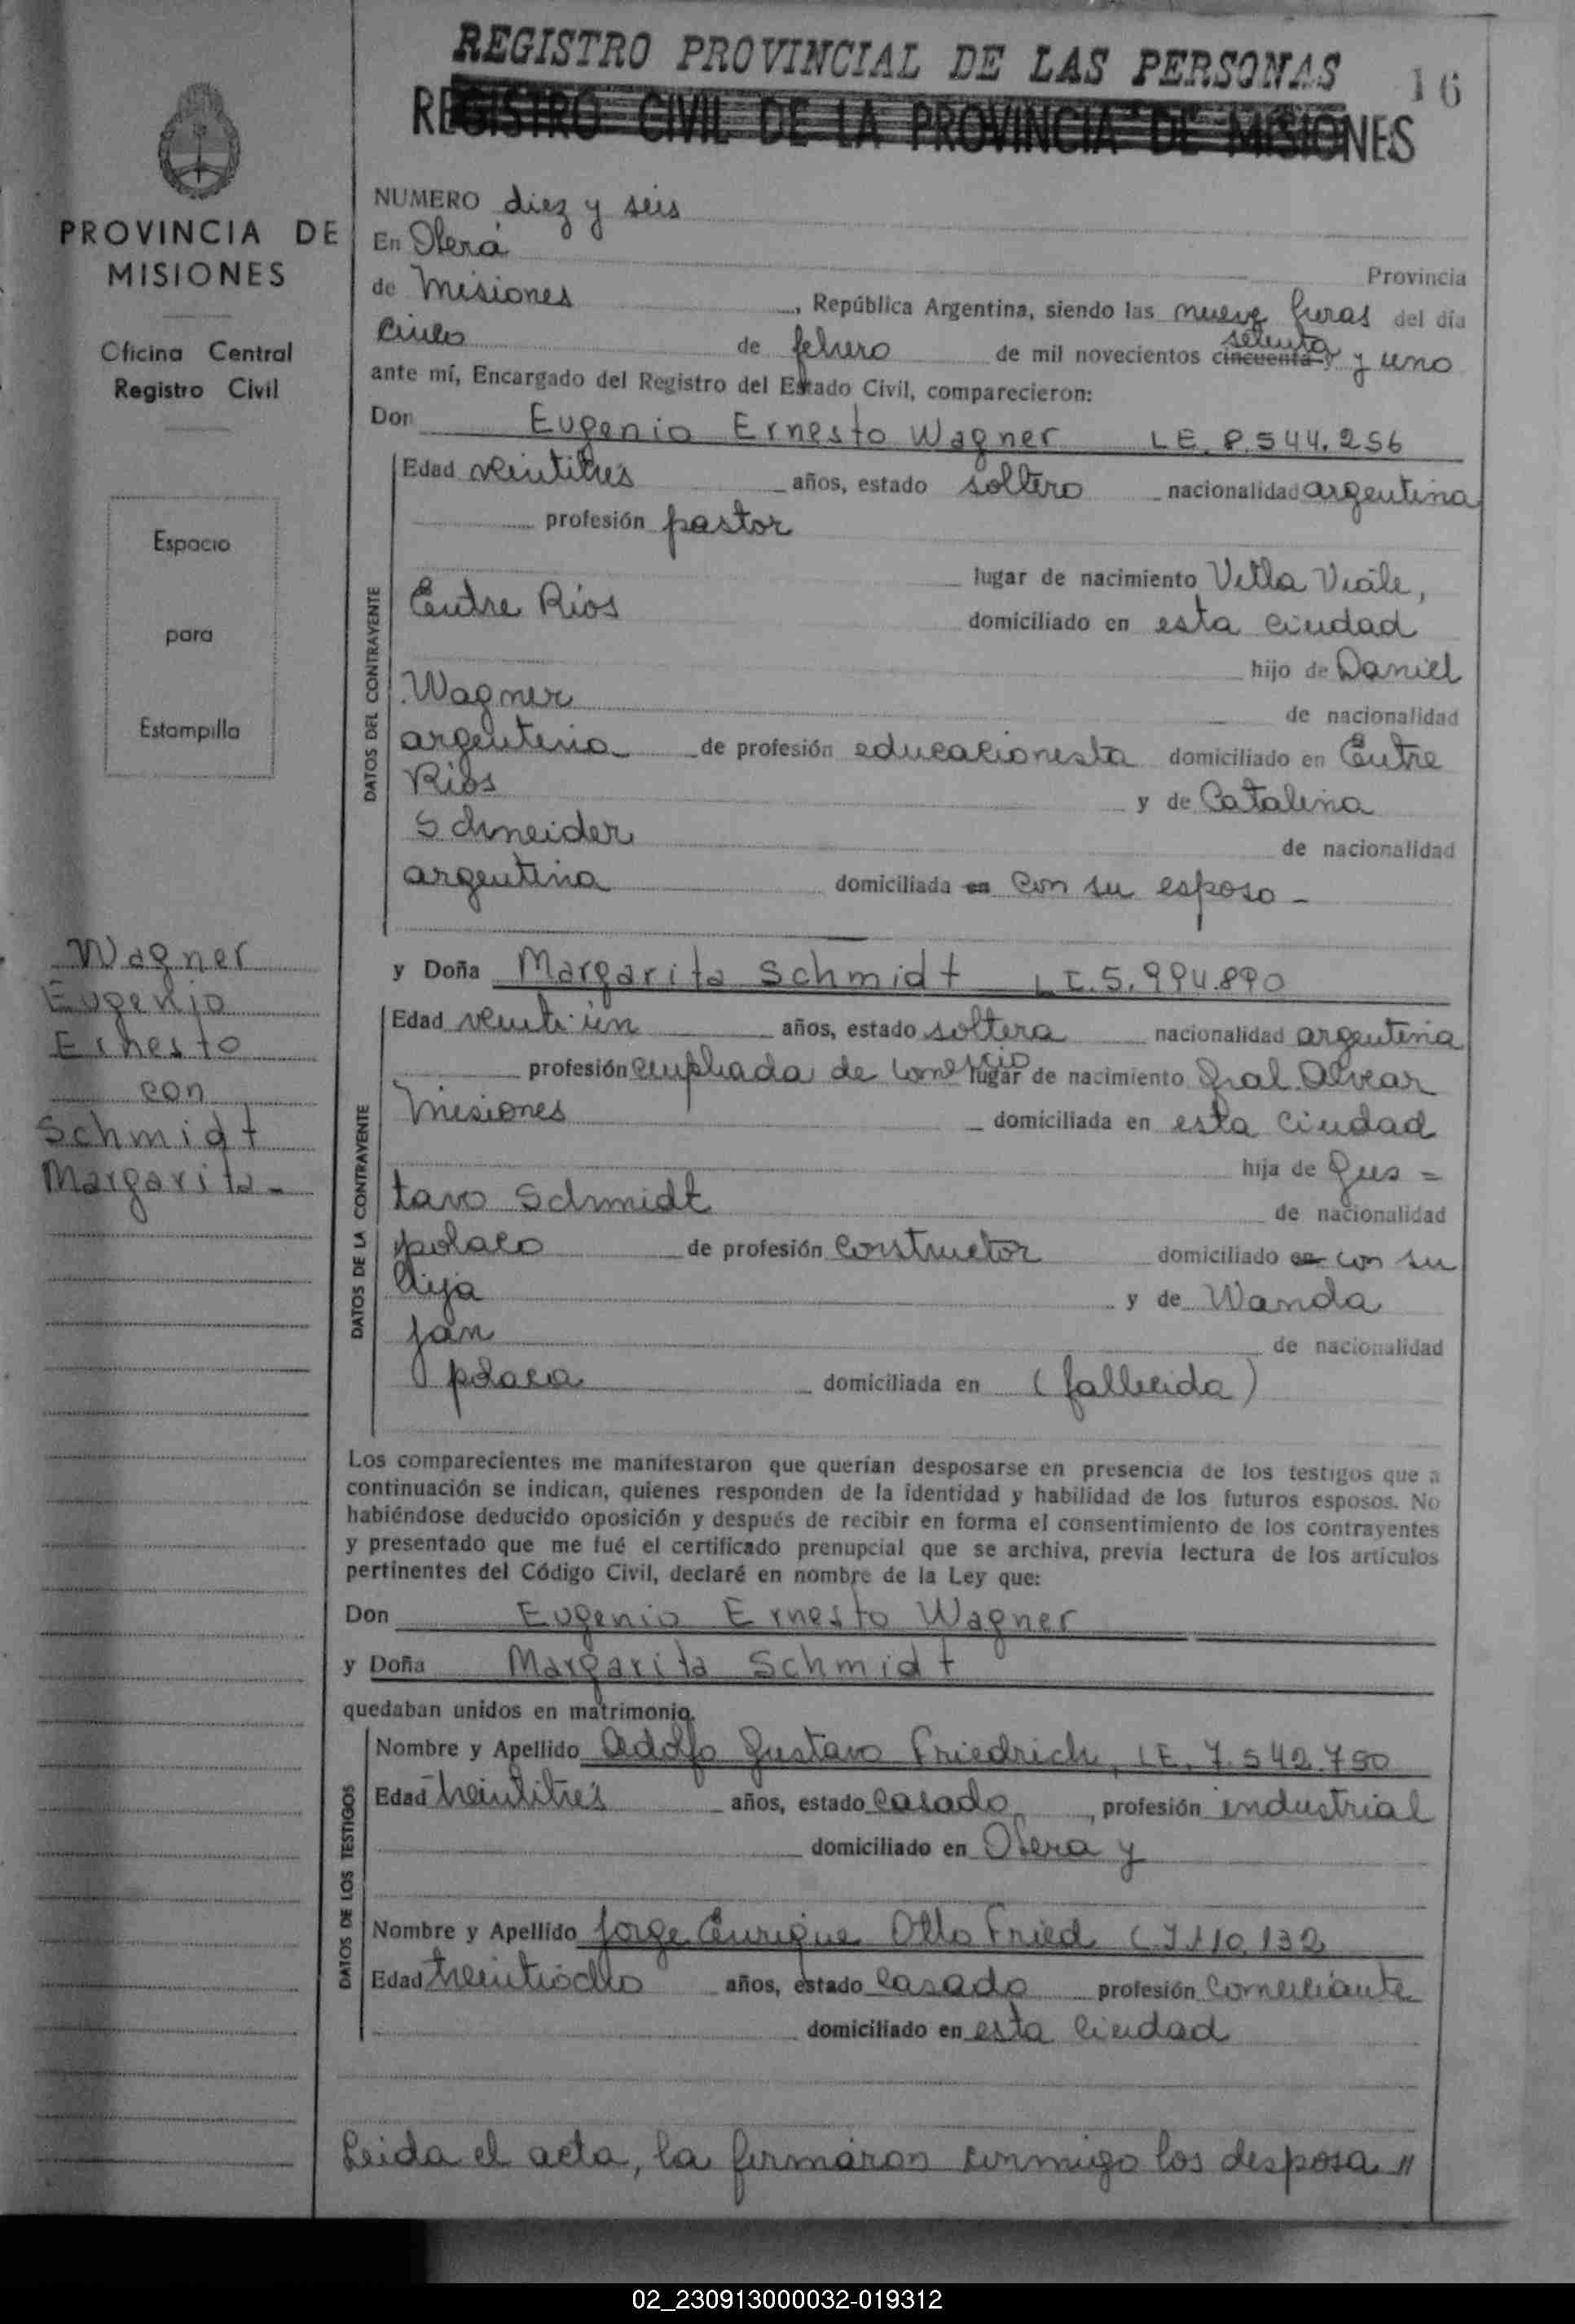 REGISTRO PROVINCIAL DE LAS PERSONAS
16
REGISTRO CIVIL DE LA PROVINCIA DE MISIONES
PROVINCIA DE
MISIONES
Oficina Central
Registro Civil
Espacio
para
Estampilla
Wagner
Eugenio
Ernesto
con
Schmidt
Margarita-
NUMERO diez y seis
En Oberá
Provincia
de Misiones, República Argentina, siendo las nueve horas del día
cinco de febrero de mil novecientos cincuenta y setenta y uno
ante mí, Encargado del Registro del Estado Civil, comparecieron:
Don Eugenio Ernesto Wagner LE. 8.544.256
DATOS DEL CONTRAYENTE
Edad veintitrés años, estado soltero nacionalidad argentina
profesión pastor
lugar de nacimiento Villa Viale,
Entre Ríos domiciliado en esta ciudad
hijo de Daniel
Wagner de nacionalidad
argentino de profesión educacionista domiciliado en Entre
Ríos y de Catalina
Schneider de nacionalidad
argentina domiciliada en con su esposo -
y Doña Margarita Schmidt L.I. 5.994.890
DATOS DE LA CONTRAYENTE
Edad veintiún años, estado soltera nacionalidad argentina
profesión empleada de comercio lugar de nacimiento Gral. Alvear
Misiones domiciliada en esta ciudad
hija de Gus =
tavo Schmidt de nacionalidad
polaco de profesión constructor domiciliado en con su
hija y de Wanda
Jan de nacionalidad
polaca domiciliada en (fallecida)
Los comparecientes me manifestaron que querían desposarse en presencia de los testigos que a
continuación se indican, quienes responden de la identidad y habilidad de los futuros esposos. No
habiéndose deducido oposición y después de recibir en forma el consentimiento de los contrayentes
y presentado que me fué el certificado prenupcial que se archiva, previa lectura de los artículos
pertinentes del Código Civil, declaré en nombre de la Ley que:
Don Eugenio Ernesto Wagner
y Doña Margarita Schmidt
quedaban unidos en matrimonio.
DATOS DE LOS TESTIGOS
Nombre y Apellido Adolfo Gustavo Friedrich, LE. 7.542.750
Edad treintitrés años, estado casado, profesión industrial
domiciliado en Oberá y
Nombre y Apellido Jorge Enrique Otto Fried C.I 110.132
Edad treintiocho años, estado casado profesión comerciante
domiciliado en esta ciudad
Leída el acta, la firmaron conmigo los desposa //
02_230913000032-019312